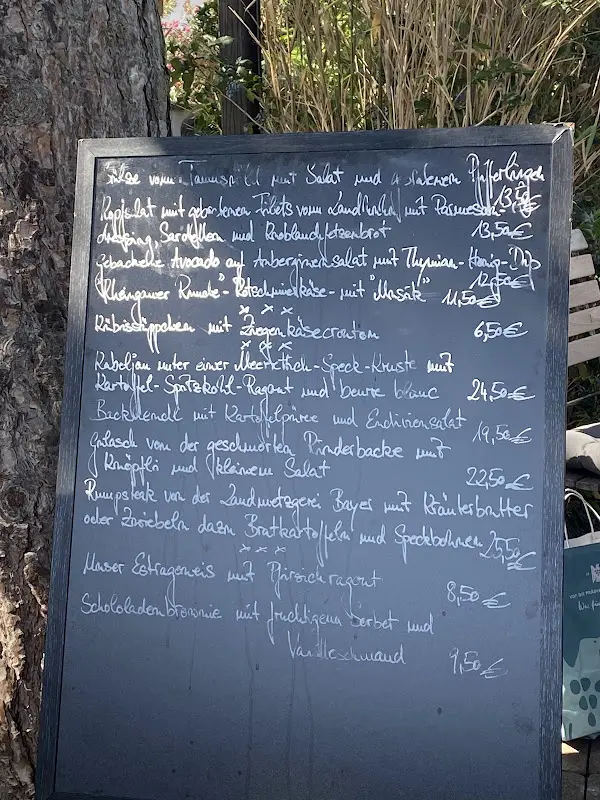 Sülze vom Taunuswild mit Salat und gebratenen Pfifferlingen
13,50€
Kopfsalat mit gebratenen Filets vom Landhuhn mit Parmesan-
dressing, Sardellen und Knoblauchfetzenbrot 13,50€
Gebackene Avocado auf Auberginensalat mit Thymian-Honig-Dip
12,50€
"Rheingauer Runde"-Rotschmierkäse-mit "Musik" 11,50€
x x x
Kürbissüppchen mit Ziegenkäsecrouton 6,50€
x x x
Kabeljau unter einer Meerrettich-Speck-Kruste mit
Kartoffel-Spitzkohl-Ragout und beurre blanc 24,50€
Backhendl mit Kartoffelpüree und Endiviensalat
19,50€
Gulasch von der geschmorten Rinderbacke mit
Knöpfli und kleinem Salat 22,50€
Rumpsteak von der Landmetzgerei Bayer mit Kräuterbutter
oder Zwiebeln dazu Bratkartoffeln und Speckbohnen 25,50€
x x x
Unser Estragoneis mit Pfirsichragout
8,50€
Schokoladenbrownie mit fruchtigem Sorbet und
Vanilleschmand 9,50€